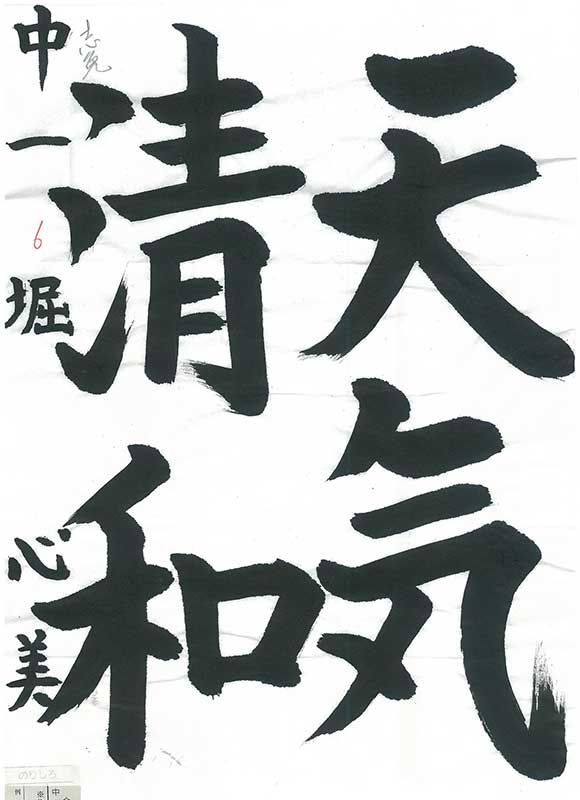 天気
清和
中一 堀 心美
6
のりしろ